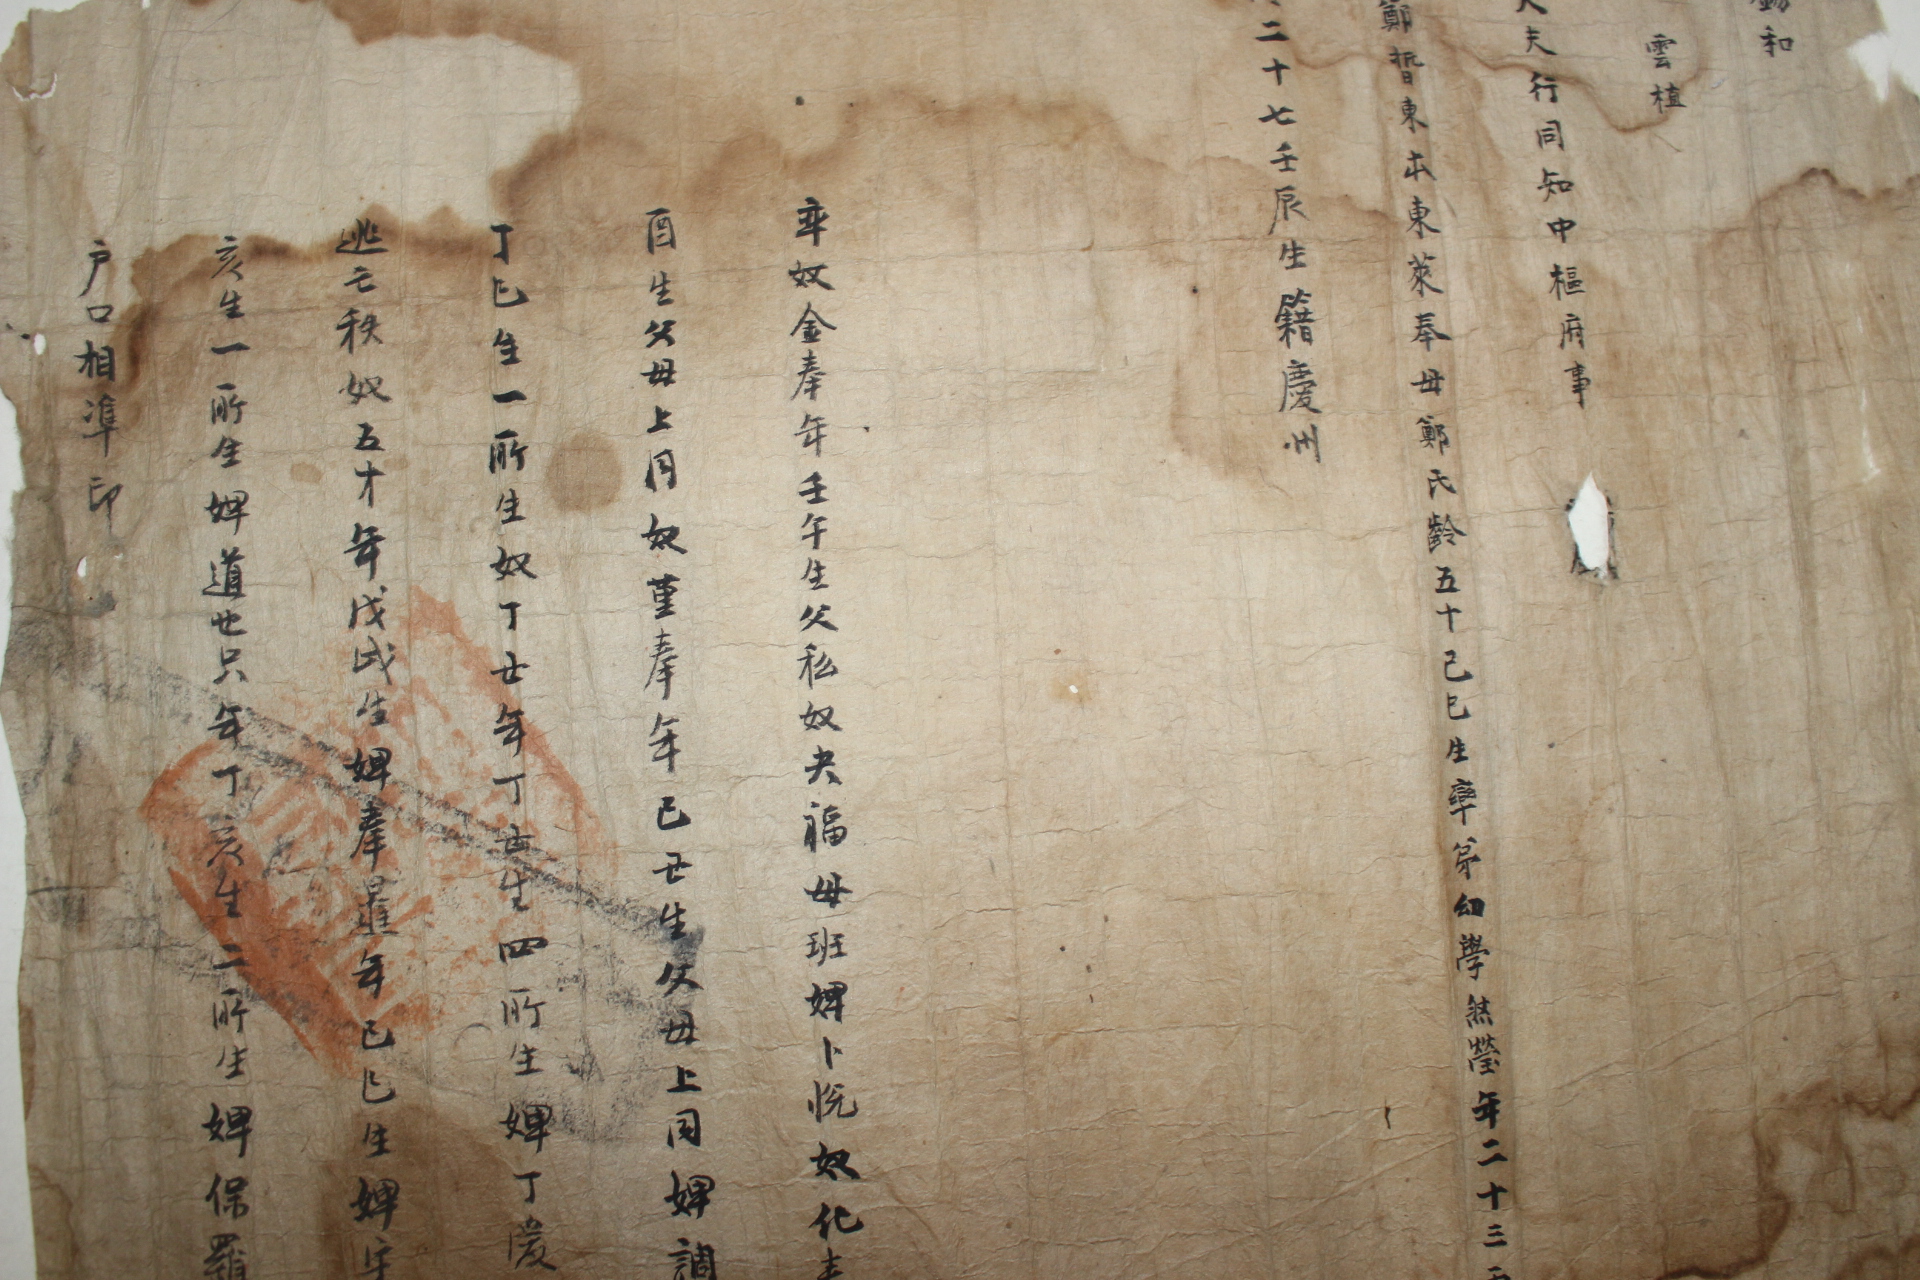 和
雲植
夫行同知中樞府事
鄭晢東本東萊奉母鄭氏齡五十己巳生率弟幼學然瑩年二十三
二十七壬辰生籍慶州
率奴金奉年壬午生父私奴夫福母班婢卜悅奴化
酉生父母上同奴堇奉年己丑生父母上同婢調
丁巳生一所生奴丁丑年丁丑生四所生婢丁慶
逃亡秩奴五才年戊戌生婢奉暹年己巳生婢
亥生一所生婢道也只年丁亥生二所生婢保羅
戶口相準印